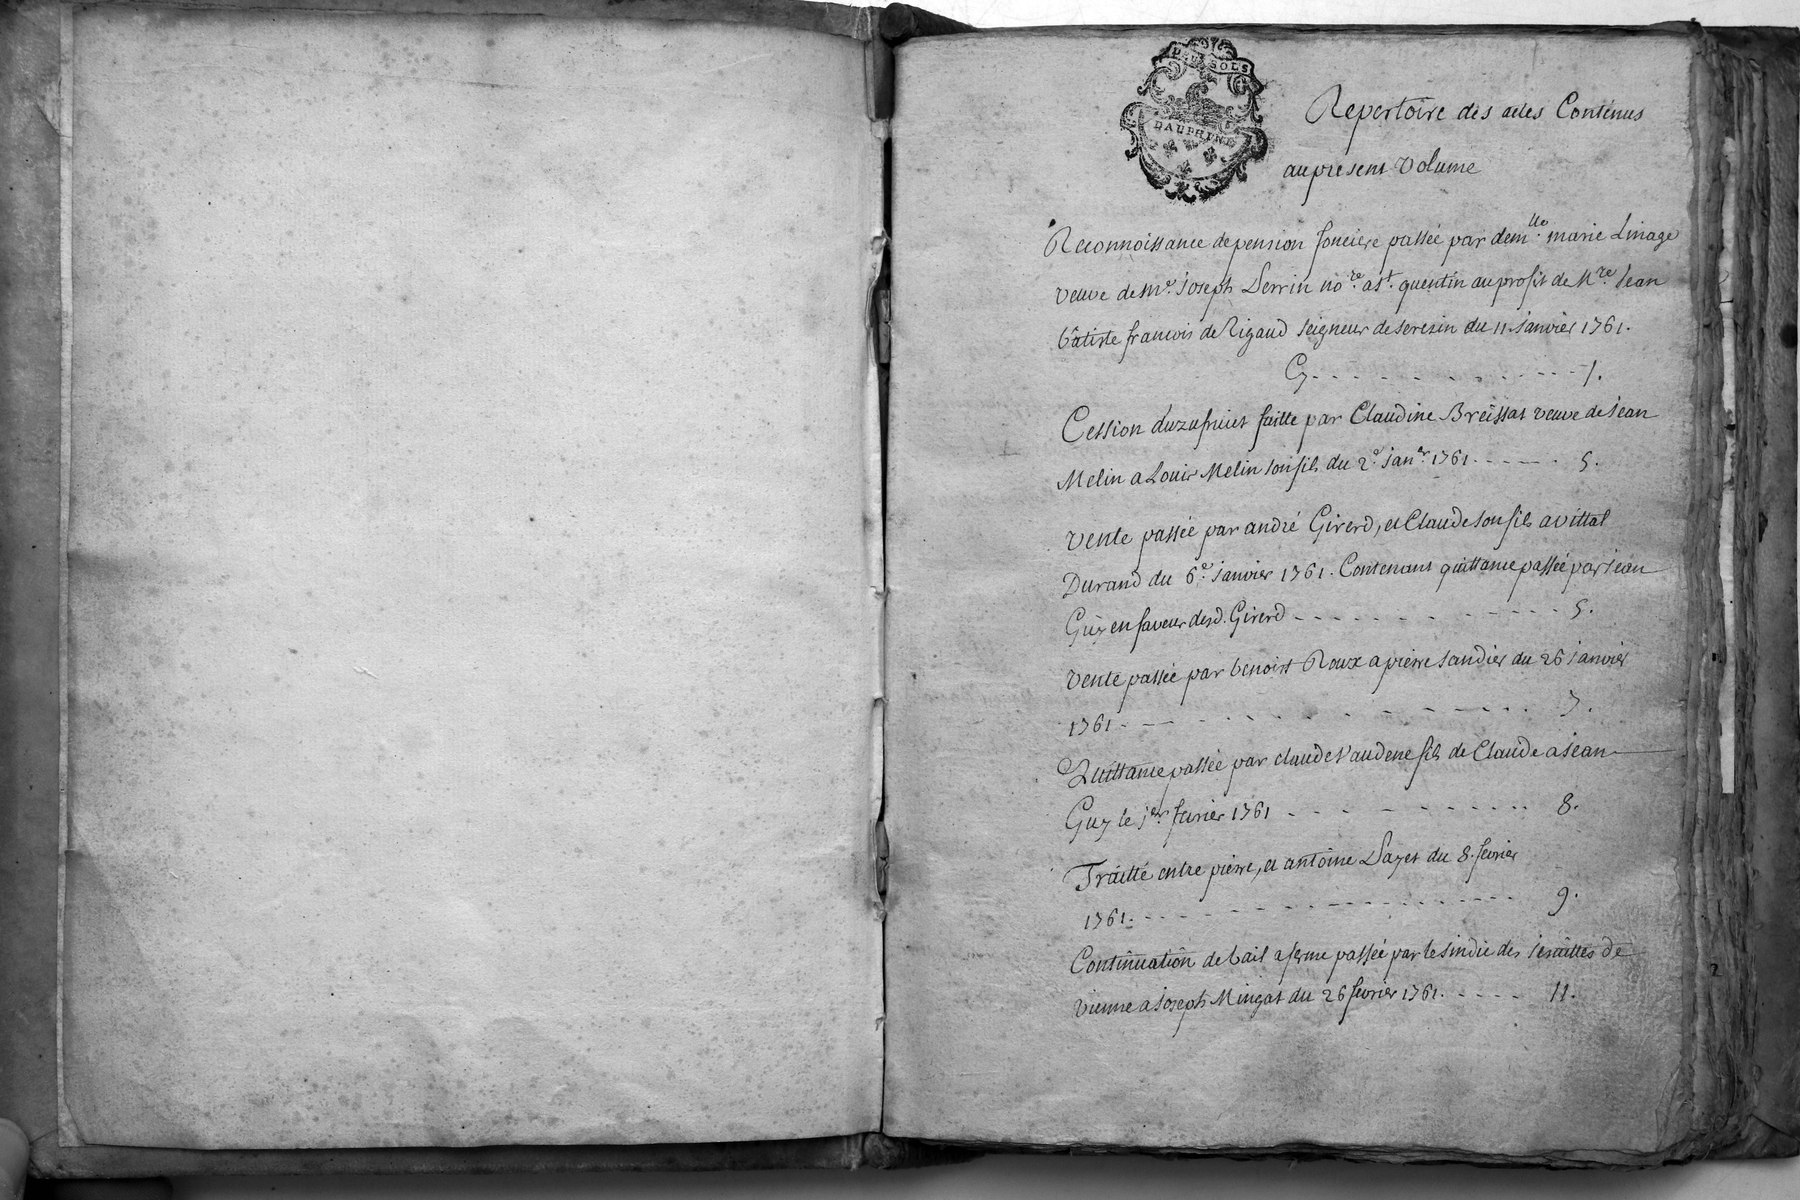 DEUX SOLS
DAUPHINÉ
Repertoire des actes Contenus
au present Volume
Reconnoissance de pension fonciere passée par dem.lle marie Linage
veuve de m.e joseph Perrin no.re a s.t quentin au profit de M.re Jean
bâtiste francois de Rigaud seigneur de seresin du 11 janvier 1761.
Cy. - - - - - - - - - - - - 1.
Cession duzufruict faitte par Claudine Breissat veuve de jean
Melin a Louis Melin son fils du 2.e jan.er 1761 - - - - - 5.
Vente passée par andré Girerd, et Claude son fils a vittal
Durand du 6.e janvier 1761. Contenant quittance passée par jean
Guy en faveur desd. Girerd - - - - - - - - - - - 5.
Vente passée par benoist Roux a pierre sandier du 26 janvier
1761 - - - - - - - - - - - - 7.
Quittance passée par claude Vaudene fils de Claude a jean
Guy le 1.er fevrier 1761 - - - - - - - - - - 8.
Traitté entre pierre, et antoine Payet du 8. fevrier
1761. - - - - - - - - - - - - - 9.
Continuation de bail a ferme passée par le sindic des jesuittes de
Vienne a joseph Mingat du 26 fevrier 1761. - - - - - 11.